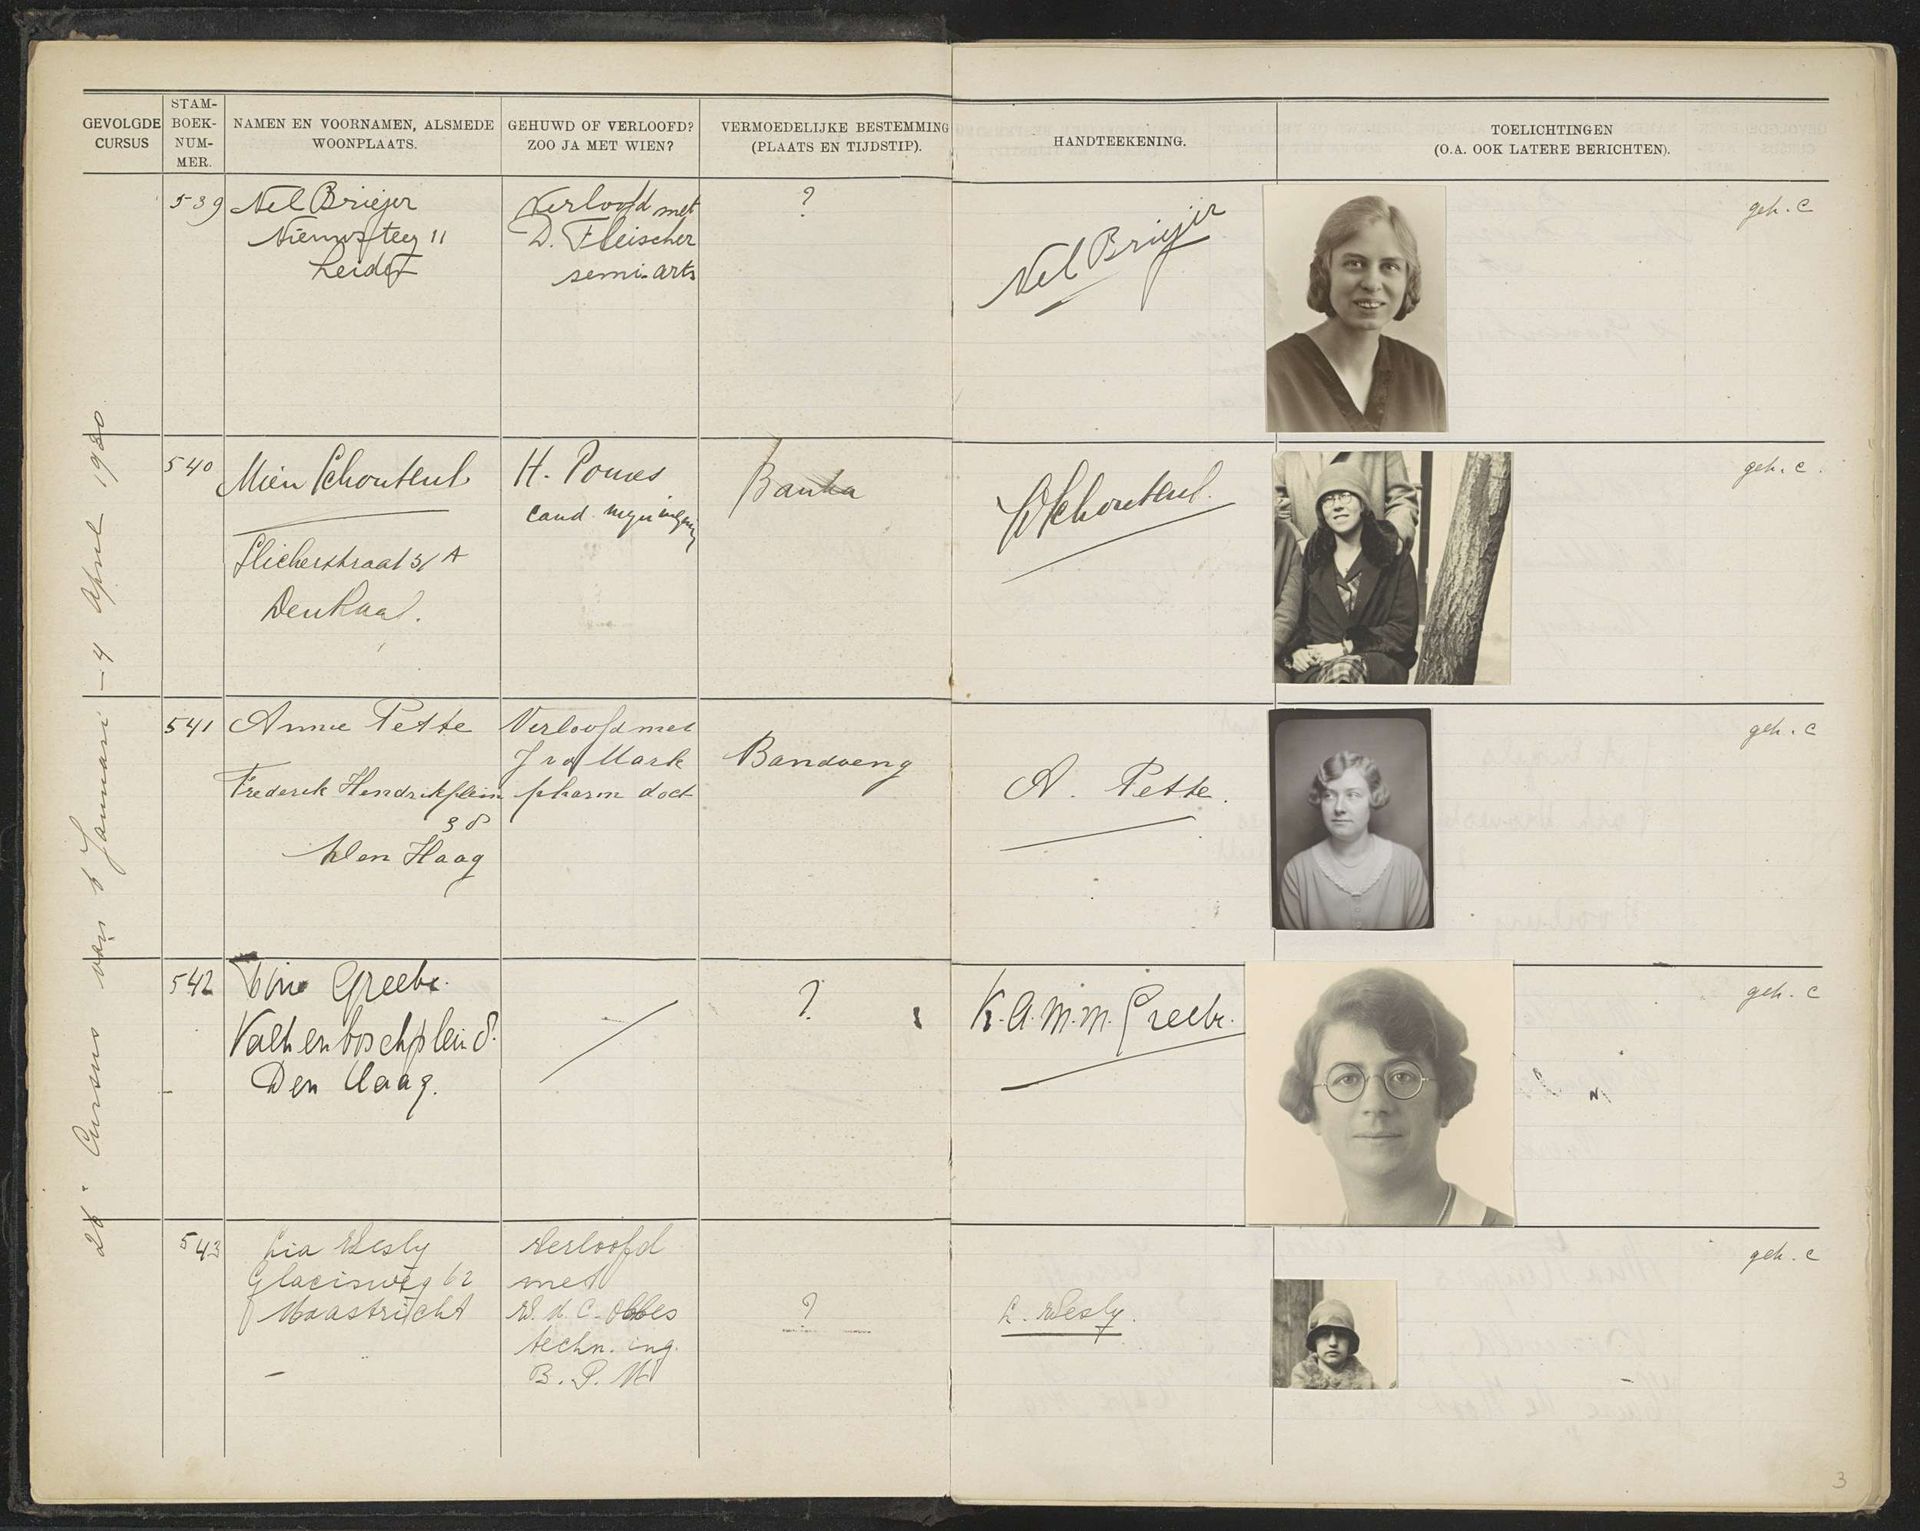 GEVOLGDE CURSUS
STAM-BOEK-NUM-MER.
NAMEN EN VOORNAMEN, ALSMEDE WOONPLAATS.
GEHUWD OF VERLOOFD? ZOO JA MET WIEN?
VERMOEDELIJKE BESTEMMING (PLAATS EN TIJDSTIP).
HANDTEEKENING.
TOELICHTINGEN
(O.A. OOK LATERE BERICHTEN).
Cursus van 6 Januari - 4 April 1930
539
Nel Briejer
Nieuwsteeg 11
Leiden
Verloofd met
D. Fleischer
semi-arts
?
Nel Briejer
geh. C
540
Mien Schouten
Den Haag.
H. Pomes
cand.
Banka
W Schouten.
geh. C.
541
Annie Pette
Frederik Hendrikplein
38
Den Haag
Verloofd met
J v d Mark
pharm doct
Bandoeng
A. Pette.
geh. C
542
Greebe.
Valkenboschplein 8.
Den Haag.
?
K.A.M.M. Greebe.
geh. C
543
Lia Wesly
Glacisweg 62
Maastricht
Verloofd
met
W. H. C. Obbes
techn. ing.
B. P. M
?
L. Wesly.
geh. C
3